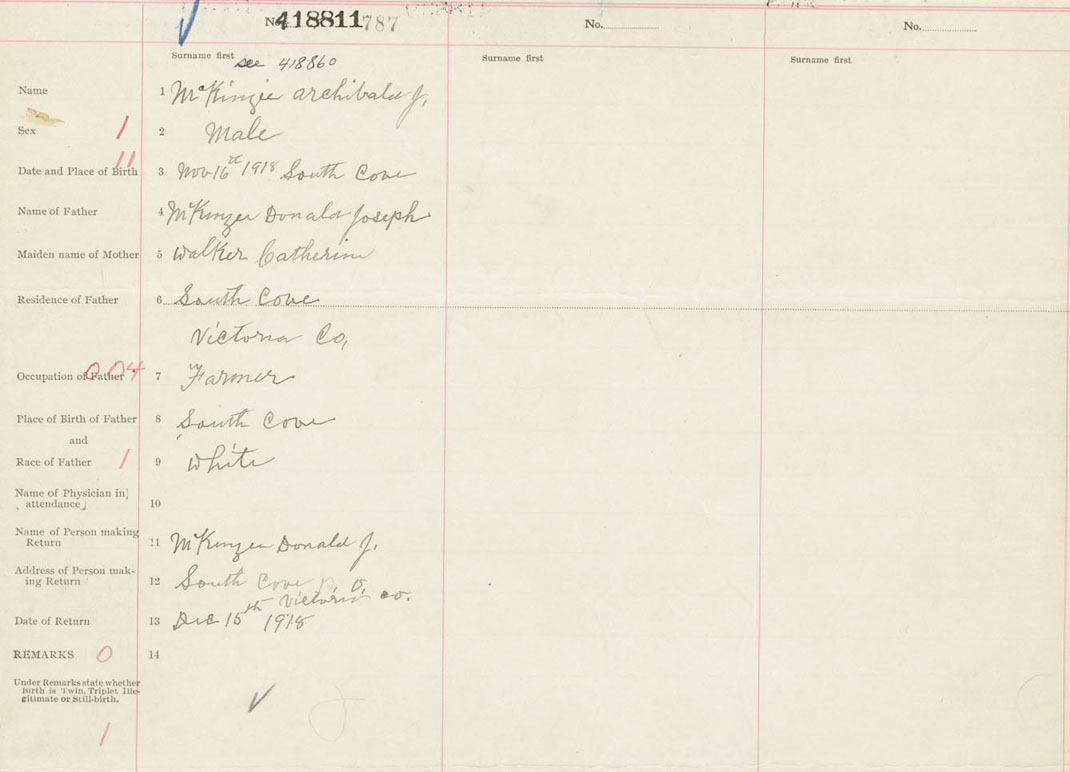 No. 418811 787
No.
No.
Surname first
see 418860
Surname first
Surname first
Name 1 McKinzie Archibald J,
Sex 1 2 Male
11
Date and Place of Birth 3 Nov 16th 1918 South Cove
Name of Father 4 McKinzie Donald Joseph
Maiden name of Mother 5 Walker Catherine
Residence of Father 6 South Cove
Victoria Co,
Occupation of Father 004 7 Farmer
Place of Birth of Father 8 South Cove
and
Race of Father 1 9 White
Name of Physician in
attendance 10
Name of Person making
Return 11 McKinzie Donald J.
Address of Person mak-
ing Return 12 South Cove P. O,
Victoria Co.
Date of Return 13 Dec 15th 1918
REMARKS 0 14
Under Remarks state whether
Birth is Twin, Triplet Ille-
gitimate or Still-birth.
1